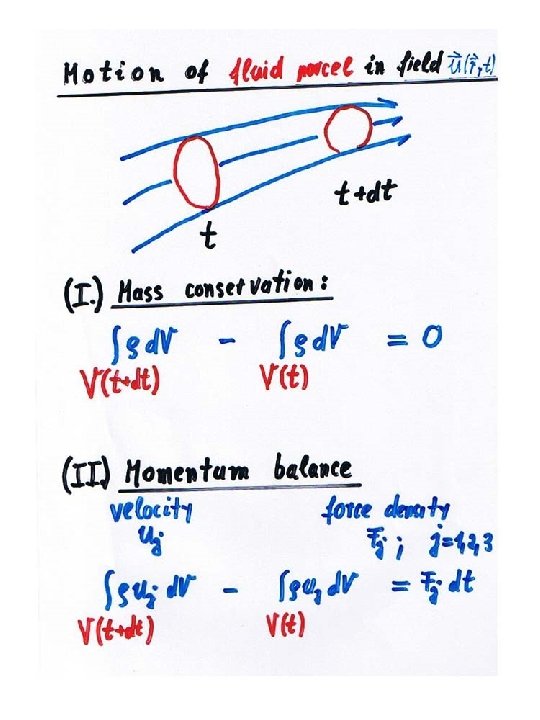 Motion of fluid parcel in field u⃗(r⃗,t)
t+dt
t
(I.) Mass conservation:
∫ρdV - ∫ρdV = 0
V(t+dt) V(t)
(II) Momentum balance
velocity force density
u_j F_j ; j=1,2,3
∫ρu_j dV - ∫ρu_j dV = F_j dt
V(t+dt) V(t)